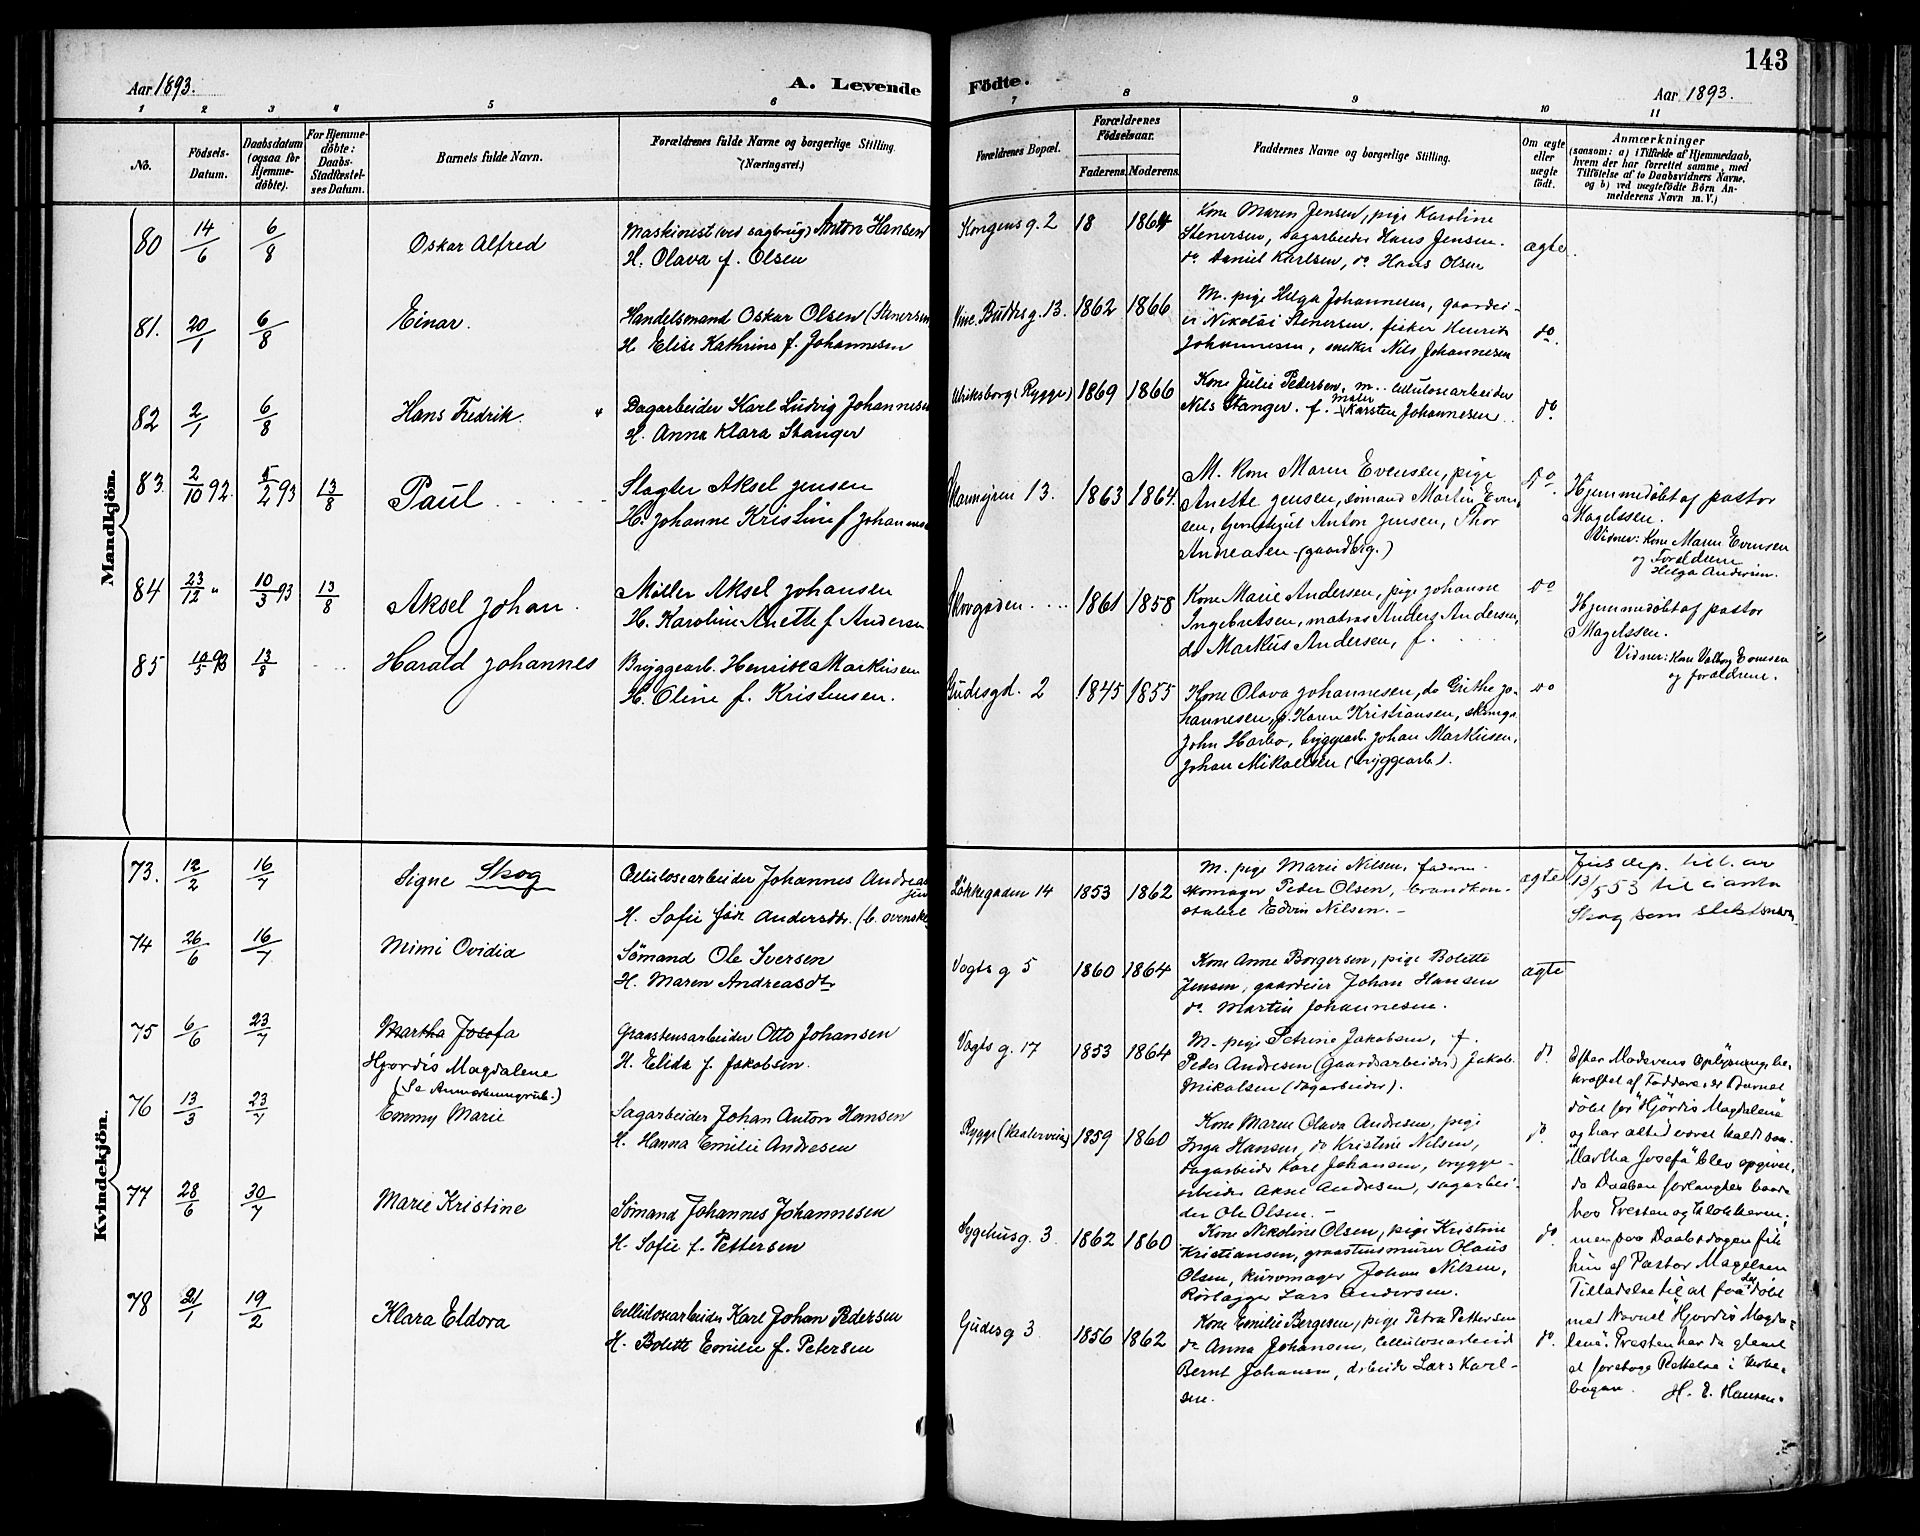 143
Aar 1893.
A. Levende
Födte.
Aar 1893.
1 2 3 4 5 6
7 8 9 10 11
No.
Födsels-
Datum.
Daabsdatum
(ogsaa for
Hjemme-
döbte).
For Hjemme-
döbte:
Daabs-
Stadfæstel-
ses Datum.
Barnets fulde Navn.
Forældrenes fulde Navne og borgerlige Stilling
(Næringsvei.)
Forældrenes Bopæl.
Forældrenes
Födselsaar.
Faderens. Moderens.
Faddernes Navne og borgerlige Stilling.
Om ægte
eller
uægte
födt.
Anmærkninger
(saasom: a) i Tilfælde af Hjemmedaab,
hvem der har forrettet samme, med
Tilföielse af to Daabsvidners Navne,
og b) ved uægtefödte Börn An-
melderens Navn m. V.)
Mandkjön.
80 14/6 6/8 Oskar Alfred
Maskinist (ved sagbrug) Anton Hansen
H. Olava f. Olsen
Kongens g. 2 18 1864
Kone Maren Jensen, pige Karoline
Stenersen, sagarbeider Hans Jensen.
do Daniel Karlsen, do Hans Olsen
ægte
81. 20/1 6/8 Einar.
Handelsmand Oskar Olsen (Stenersen
H. Elise Kathrine f. Johannesen
Vinc. Buddes g. 13. 1862 1866
M. pige Helga Johannesen, gaardei-
er Nikolai Stenersen, fisker Henrik
Johannesen, snedker Nils Johannesen
do.
82 2/1 6/8 Hans Fredrik.
Dagarbeider Karl Ludvig Johannesen
H. Anna Klara Stanger
Ulriksborg (Rygge) 1869 1866
Kone Julie Pedersen, m. Cellulosearbeider
Nils Stanger. f. maler Karsten Johannesen
do.
83. 2/10 92. 5/2 93 13/8 Paul
Slagter Aksel Jensen
H. Johanne Kristine f Johannes
13. 1863 1864.
M. Kone Maren Evensen, pige
Aneste Jensen, sömand Martin Even-
sen, Anton Jensen, Thor
Andreasen (gaardbrg.)
Do.
Hjemmedöbt af pastor
Magelssen.
Vidner: Kone Maren Evensen
og Forældrene
Helga Andersen.
84 23/12 " 10/3 93 13/8 Aksel Johan.
Møller Aksel Johansen
H. Karoline Anette f Andersen
Skovgaden 1861 1858
Kone Marie Andersen, pige Johanne
Ingebretsen, matros Anders Andersen,
do Markus Andersen, f.
do
Hjemmedöbt af pastor
Magelssen.
Vidner: Kone Valborg Evensen
og forældrene.
85 10/5 93 13/8 Harald Johannes
Bryggearb. Henrik Markusen
H. Oline f. Kristensen.
Gudesgd. 2 1845 1855
Kone Olava Johannesen, do Grithe Jo-
hannesen, p. Karen Kristiansen,
John Harbo, bryggearb. Johan Markusen,
Johan Mikaelsen (bryggearb).
do
Kvindekjön.
73. 12/2 16/7 Signe Skog
Cellulosearbeider Johannes Andreas
H. Sofie född Andersdtr. (b. svenske)
Løkkegaden 14 1853 1862
M. pige Marie Nilsen, faderen
skomager Peder Olsen, brandkon-
stabel Edvin Nilsen. -
ægte
Jus dep. till. av
13/5 53 til å anta
Skog som slektsnavn
74 26/6 16/7 Mimi Ovidia
Sömand Ole Iversen
H. Maren Andreasdtr
Vogts g 5 1860 1864
Kone Anne Borgersen, pige Bolette
Jensen, gaardeier Johan Hansen
do Martin Johannesen.
ægte
75 6/6 23/7 Martha Josefa
Hjordis Magdalene
(Se Anmerkningrub.)
Graastensarbeider Otto Johansen
H. Elida f. Jakobsen.
Vogts g. 17 1853 1864
M. pige Petrine Jakobsen, f.
Peder Andresen (Gaardsarbeider) Jakob
Mikalsen (dagarbeider).
do.
Efter Moderens Oplysning be-
kræftet af Faddere, er Barnet
döbt for "Hjördis Magdalene"
og har altid været kaldt saa.
"Martha Josefa" blev opgivet,
da Daaben forlangtes baade
hos Presten og Klokkeren;
men paa Daabsdagen fik
hun af Pastor Magelsen
Tilladelse til at faa det döbt
med Navnet "Hjordis Magda-
lene". Presten har da glemt
at foretage Rettelse i Kirke-
bogen. H. E. Hansen.
76 13/3 23/7 Emmy Marie
Sagarbeider Johan Anton Hansen
H. Hanna Emilie Andresen
Rygge 1859 1860
Kone Maren Olava Andresen, pige
Inga Hansen, do Kristine Nilsen,
sagarbeider Karl Johansen, brygge-
arbeider Aksel Andresen, sagarbei-
der Ole Olsen. -
do.
77 28/6 30/7 Marie Kristine
Sömand Johannes Johannesen
H. Sofie f. Pettersen
Sygehusg. 3. 1862 1860
Kone Nikoline Olsen, pige Kristine
Kristiansen, graastensmurer Olaus
Olsen, kurvmager Johan Nilsen,
Rørlægger Lars Andersen.
do.
78 21/1 19/2 Klara Eldora
Cellulosearbeider Karl Johan Pedersen
H. Bolette Emilie f. Petersen
Gudes g 3 1856 1862
Kone Emilie Bergesen, pige Petra Pettersen
do Anna Johansen, Cellulosearbeid
Bernt Johansen, arbeider Lars Karl-
sen.
do.